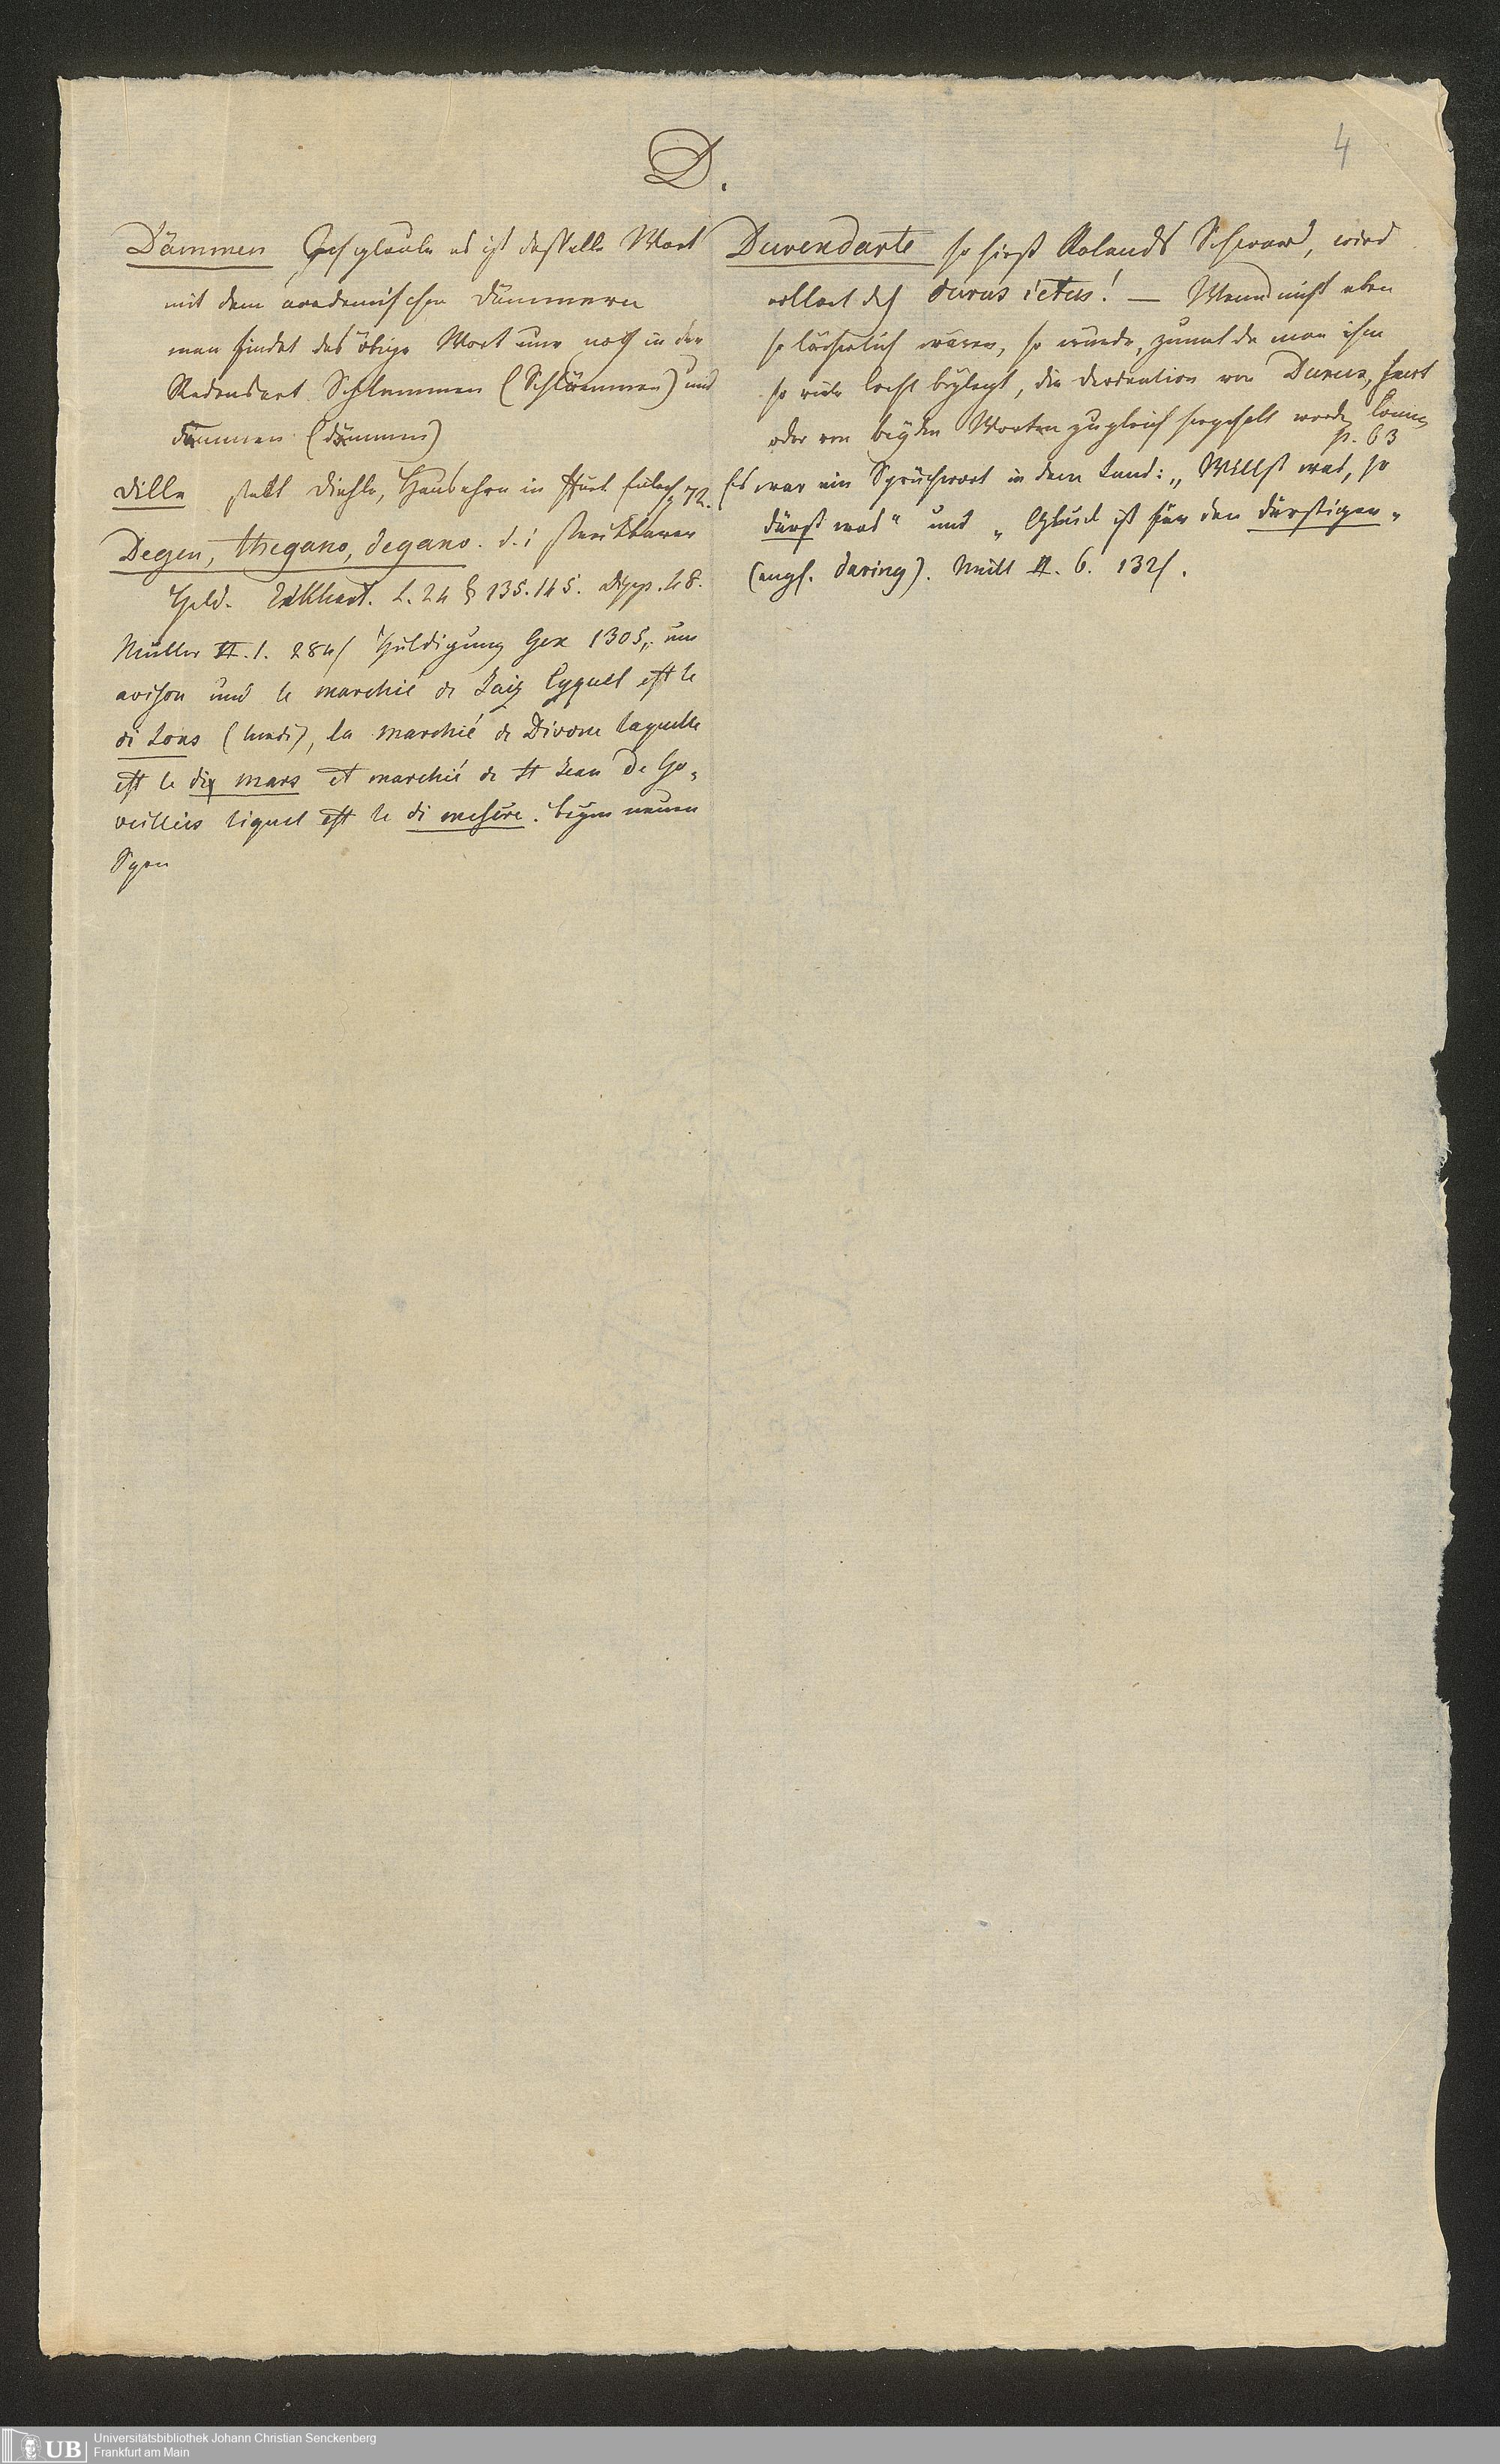 4
D.
Dämmen Ich glaube es ist dasselbe Wort
mit dem academischen Dämmern
man findet das obige Wort nur noch in der
Redensart Schlemmen (Schlämmen) und
demmen (dämmen)
Dille statt Diehle, Hausehrn in 72.
Degen, thegano, degano. d. i streitbarer
Held. Ekkhart. L. 24 § 135. 145. 48.
Müller II. 1. 284/ Huldigung Gex 1305, un
und le marchié de liquel est le
di Lons (lundi), la marchié de Divone laquelle
est le dix mars et marchié de St Jean De Go-
veilleis liquel est le di mesire. beym neuen
Durendarte so hieß Rolands Schwerd, wird
durus ictus! — Wenn nicht eben
so lächerlich wären, so würde, zumal da man ihm
so viele beylegt, die derivation von Durus, hart
oder von beyden Worten zugleich hergeholt werden können
p. 63
Es war ein Sprüchwort in dem Land: „Willst was, so
dürst was" und „Glück ist für den dürstigen"
(engl. daring). Müll II. 6. 132/.
Universitätsbibliothek Johann Christian Senckenberg
Frankfurt am Main
UB